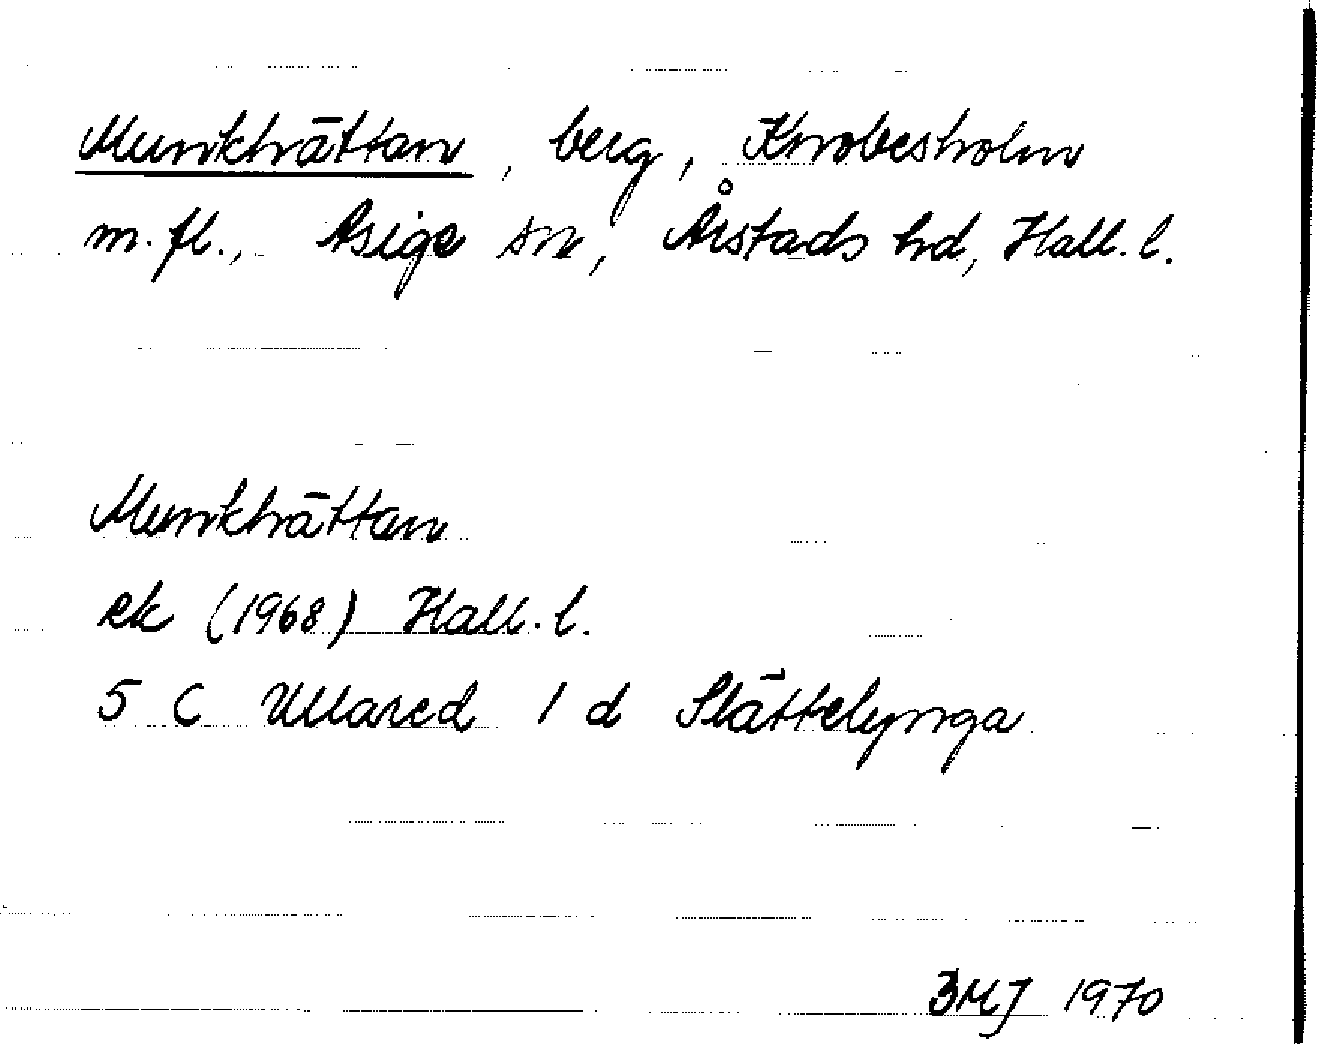 Munkhättan, berg, Knobesholm
m.fl., Asige sn, Årstads hd, Hall.l.
Munkhättan
ek (1968) Hall.l.
5 C Ullared 1 d Slättelynga
BMJ 1970